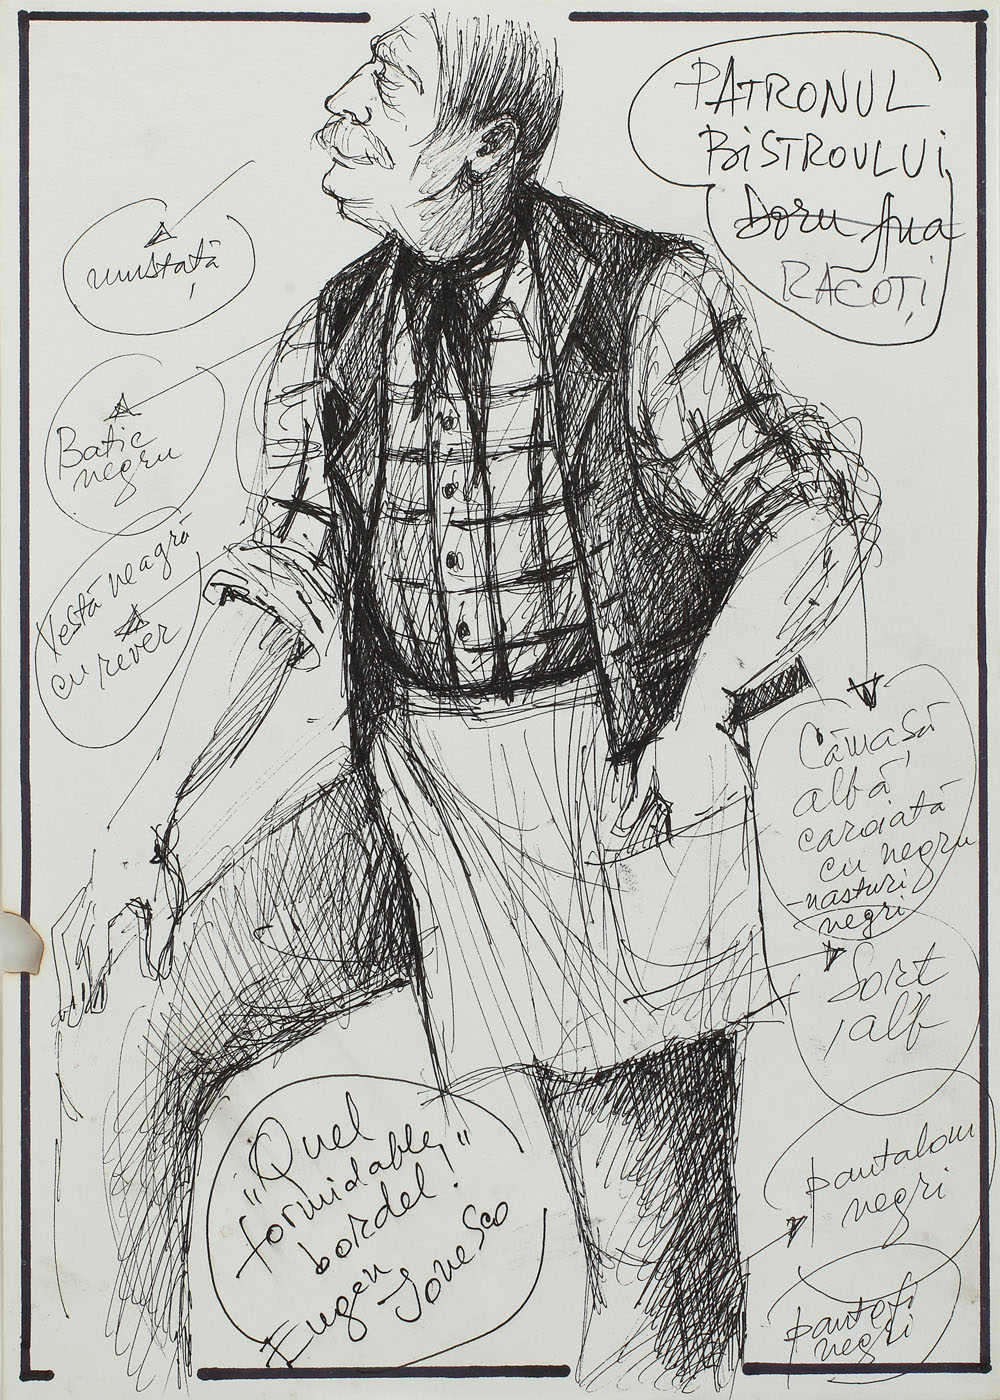 PATRONUL
BISTROULUI
Doru Ana
RACOȚI
mustață
Batic
negru
Vestă neagră
cu rever
Cămașă
albă,
caroiată
cu negru
-nasturi
negri
Șorț
alb
pantaloni
negri
pantofi
negri
"Quel
formidable
bordel!"
Eugen
Ionesco